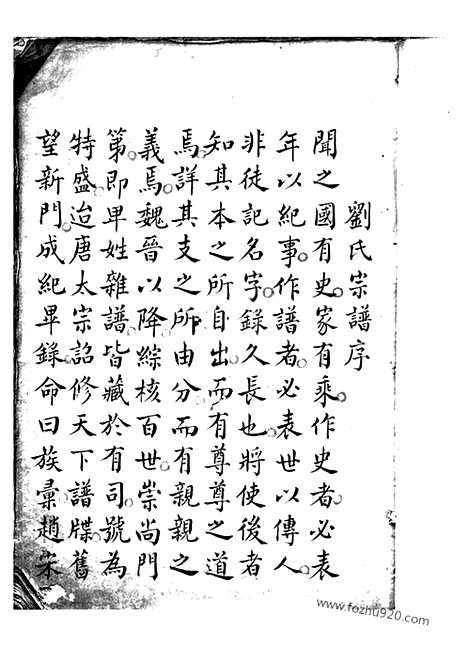 劉氏宗譜序
聞之國有史家有乘作史者必表
年以紀事作譜者必表世以傳人
非徒記名字錄久長也將使後者
知其本之所自出而有尊尊之道
焉詳其支之所由分而有親親之
義焉魏晉以降綜核百世崇尚門
第即卑姓雜譜皆藏於有司號為
特盛迨唐太宗詔修天下譜牒舊
望新門成紀畢錄命曰族彙趙宋
www.fozhu920.com